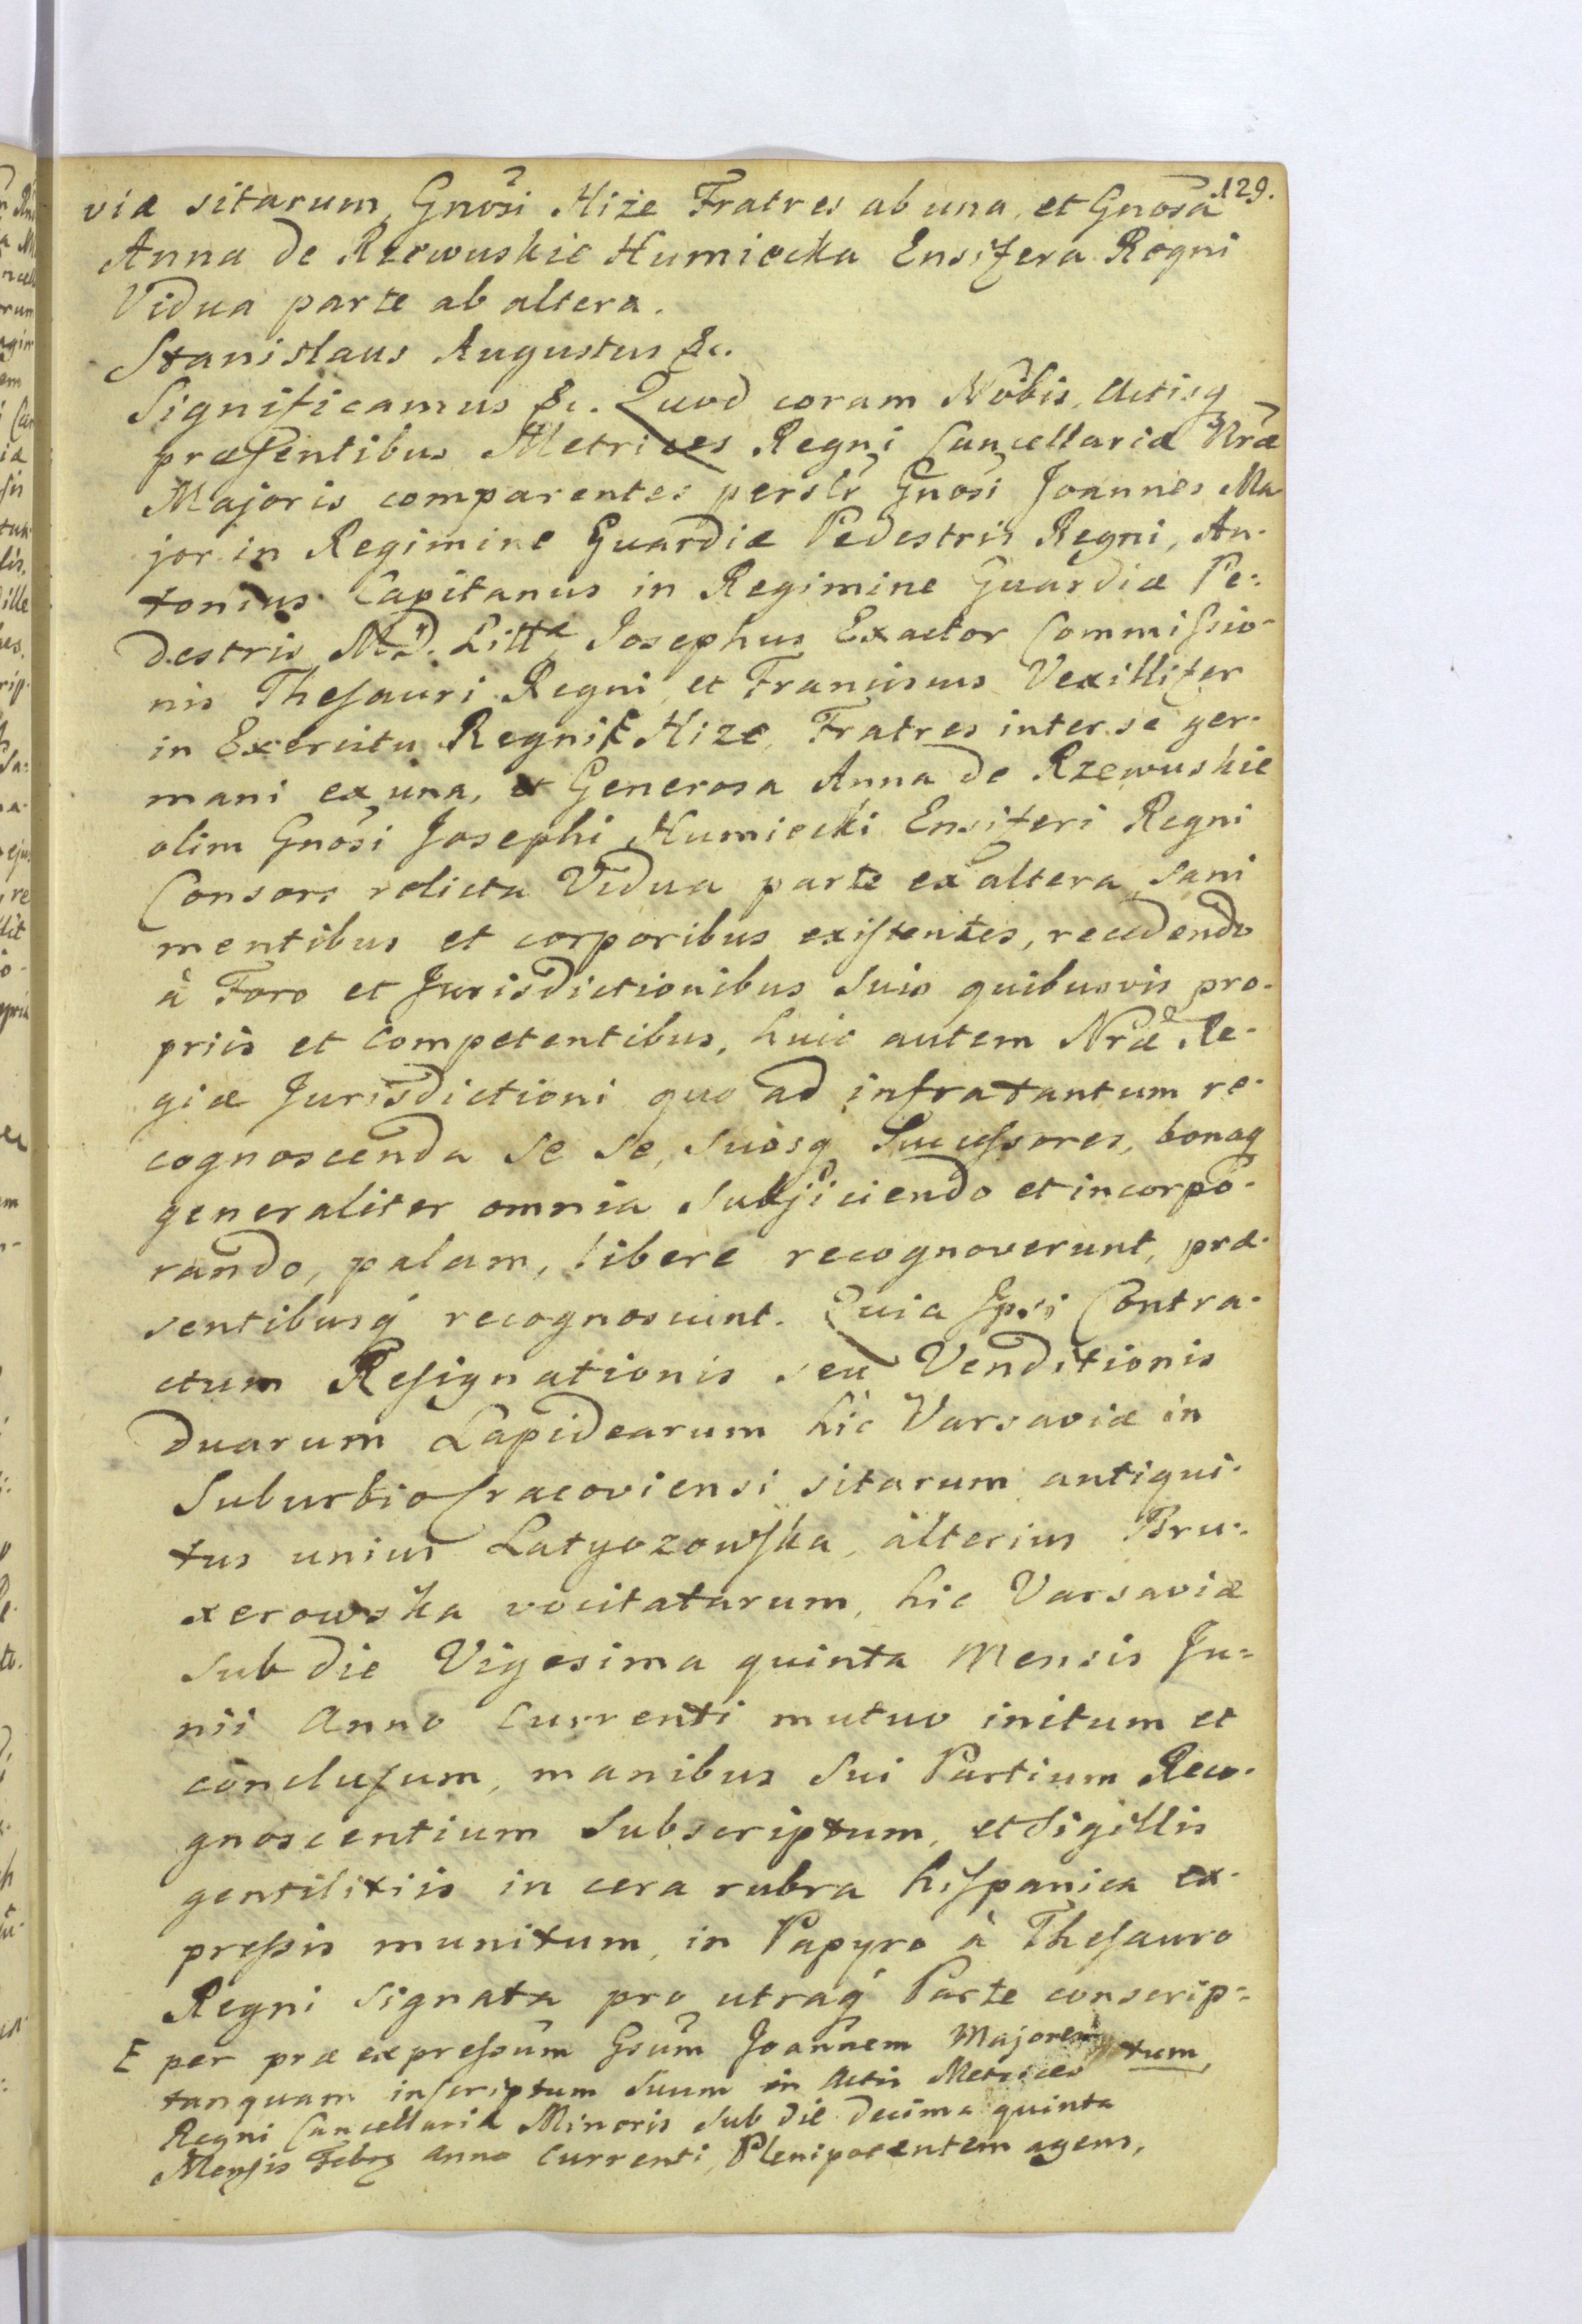 129.
viæ sitarum, Gnosi Hiże Fratres ab una, et Gnosa
Anna de Rzewuskie Humiecka Ensifera Regni
Vidua parte ab altera.
Stanislaus Augustus &c.
Significamus &c. Quod coram Nobis, Actisq
præsentibus Metrices Regni Cancellariæ Nræ
Majoris comparentes perslr Gnosi Joannes Ma
jor in Regimine Guardiæ Pedestris Regni, An-
tonius Capitanus in Regimine Guardiæ Pe=
destris M. D. Littæ Josephus Exactor Commissio-
nis Thesauri Regni, et Franciscus Vexillifer
in Exercitu Regni E Hize, Fratres inter se ger-
mani ex una, et Generosa Anna de Rzewuskie
olim Gnosi Josephi Humiecki Ensiferi Regni
Consors relicta Vidua parte ex altera, sani
mentibus et corporibus existentes, recedendo
à Foro et Jurisdictionibus suis quibusvis pro-
priis et competentibus, huic autem Nræ Re-
giæ Jurisdictioni quo ad infra tantum re-
cognoscenda se se, suosq Successores, bonaq
generaliter omnia subjiciendo et incorpo-
rando, palam, libere recognoverunt, præ-
sentibusq recognoscunt. Quia Ipsi Contra-
ctum Resignationis seu Venditionis
duarum Lapidearum hic Varsaviæ in
Suburbio Cracoviensi sitarum antiqui-
tus unius Latyozowska, alterius Bru-
xerowska vocitatarum, hic Varsaviæ
sub die Vigesima quinta Mensis Ju=
nii Anno currenti mutuo initum et
conclusum, manibus sui Partium Reco-
gnoscentium subscriptum, et Sigillis
gentilitiis in cera rubra hispanica ex-
pressis munitum, in Papyro à Thesauro
Regni signata pro utraq Parte conscrip=
tum,
E per præexpressum Gsum Joannem Majorem
tanquam inscriptum suum in Actis Metrices
Regni Cancellariæ Minoris sub die decima quinta
Mensis Febr anno currenti, Plenipotentem agens,